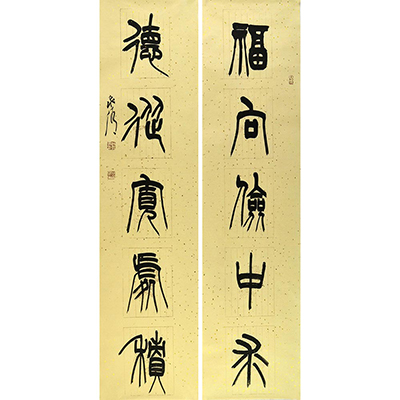 福向儉中求
德從寬處積